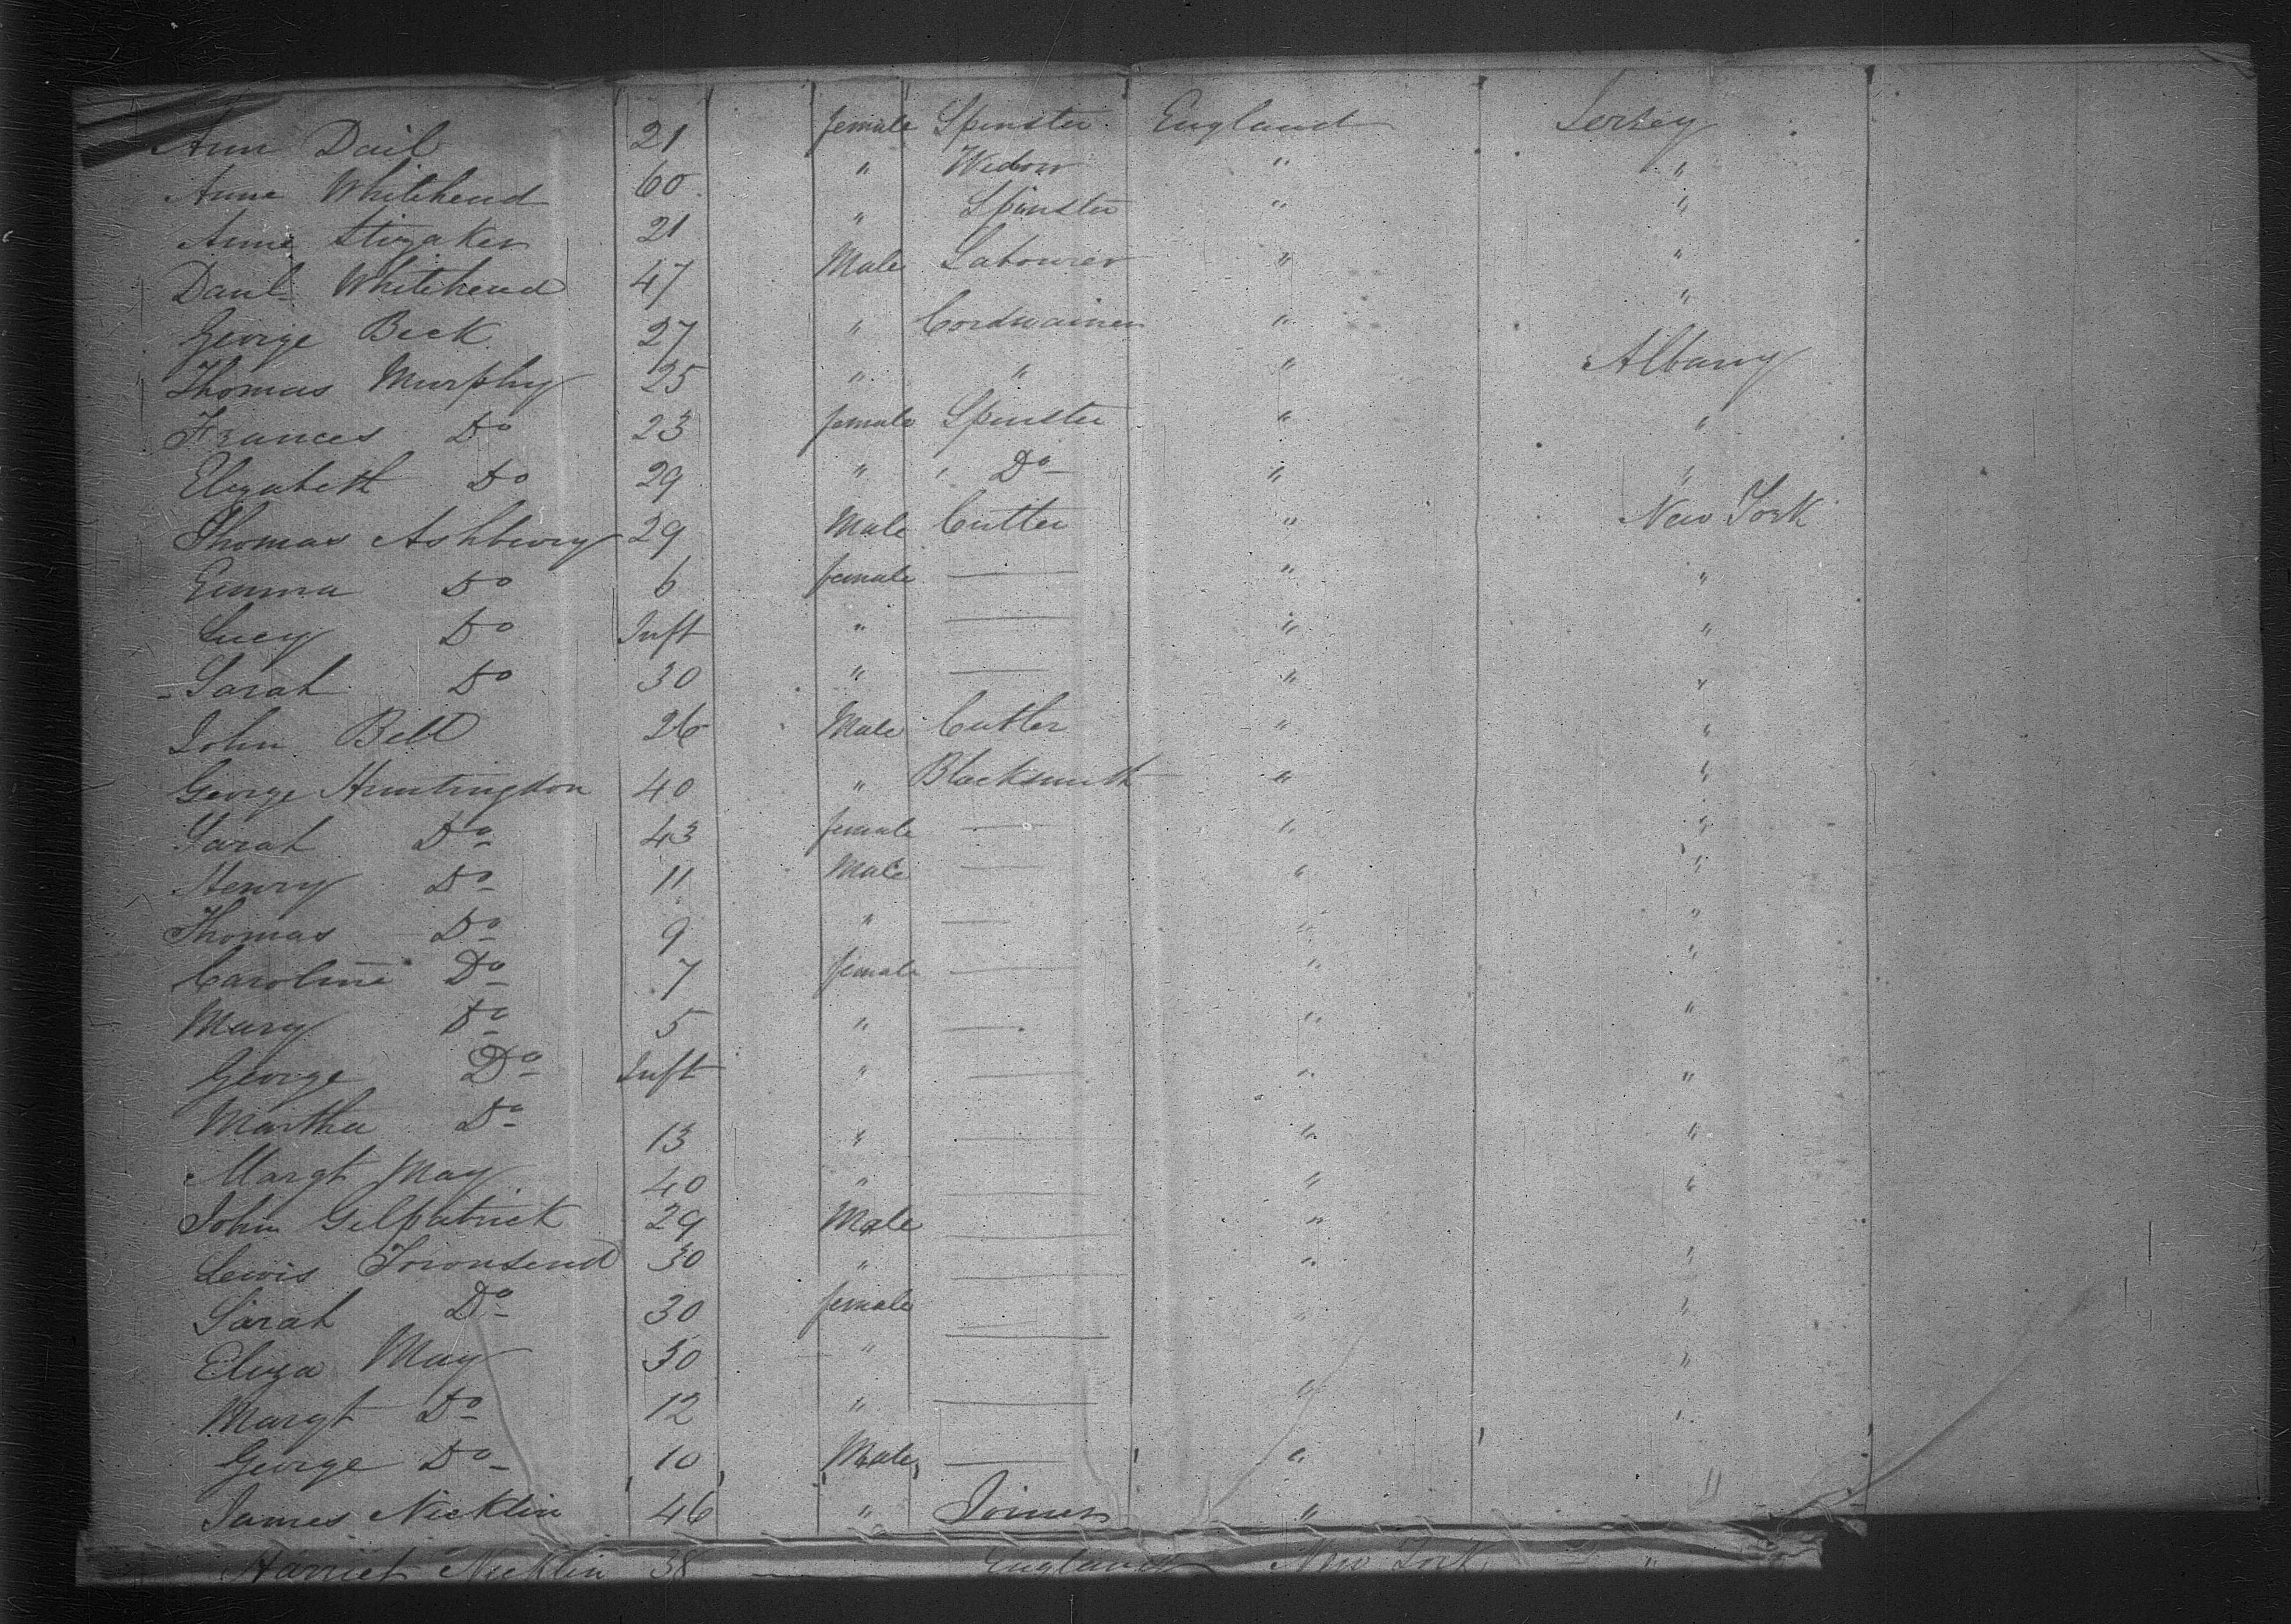 Ann Dail 21 female Spinster England Jersey
Anne Whitehead 60 " Widow " "
Anne Stizaker 21 " Spinster " "
Danl Whitehead 47 Male Labourer " "
George Beck 27 " Cordwainer " "
Thomas Murphy 25 " " " Albany
Frances Do 23 female Spinster " "
Elizabeth Do 29 " " Do " "
Thomas Ashbury 29 Male Cutler " New York
Emma Do 6 female — " "
Lucy Do Inft " — " "
Sarah Do 30 " — " "
John Bell 26 Male Cutler " "
George Huntingdon 40 " Blacksmith " "
Sarah Do 43 female — " "
Henry Do 11 Male — " "
Thomas Do 9 " — " "
Caroline Do 7 female — " "
Mary Do 5 " — " "
George Do Inft " — " "
Martha Do 13 " — " "
Margt May 40 " — " "
John Gilpatrick 29 Male — " "
Lewis Townsend 30 " — " "
Sarah Do 30 female — " "
Eliza May 30 " — "
Margt Do 12 " — " "
George Do 10 Male — "
James Nicklin 46 " Joiner " "
Harriet Nicklin 38 — England New York "